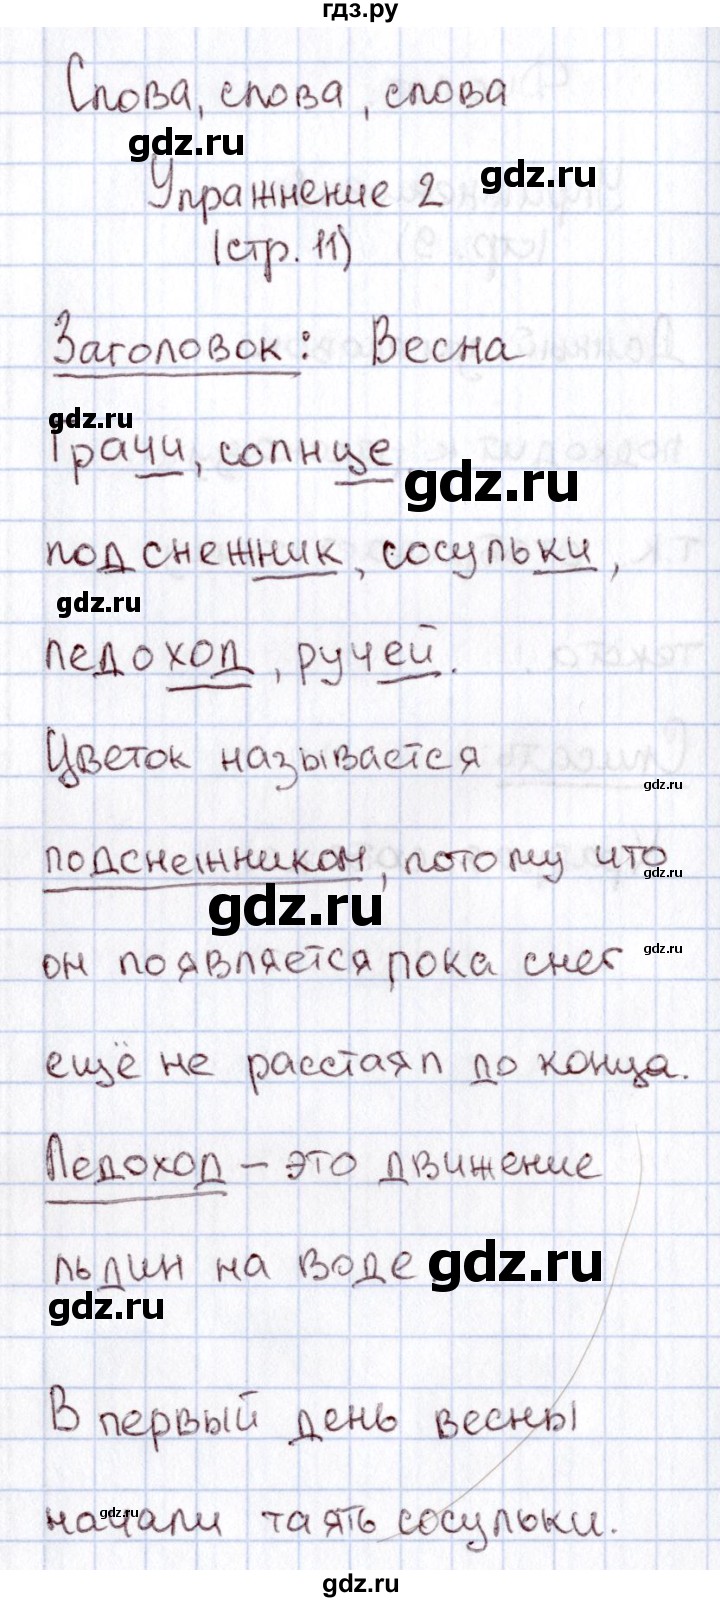 гдз.ру
Слова, слова, слова
gdz.ru
gdz.ru
Упражнение 2
(стр. 11)
Заголовок: Весна
gdz.ru
Грачи, солнце
gdz.ru
подснежник, сосульки,
gdz.ru
ледоход, ручей.
Цветок называется
gdz.ru
подснежником, потому что
gdz.ru
gdz.ru
он появляется пока снег
gdz.ru
ещё не расстаял до конца.
Ледоход - это движение
льдин на воде
gdz.ru
gdz.ru
В первый день весны
gdz.ru
начали таять сосульки.
gdz.ru